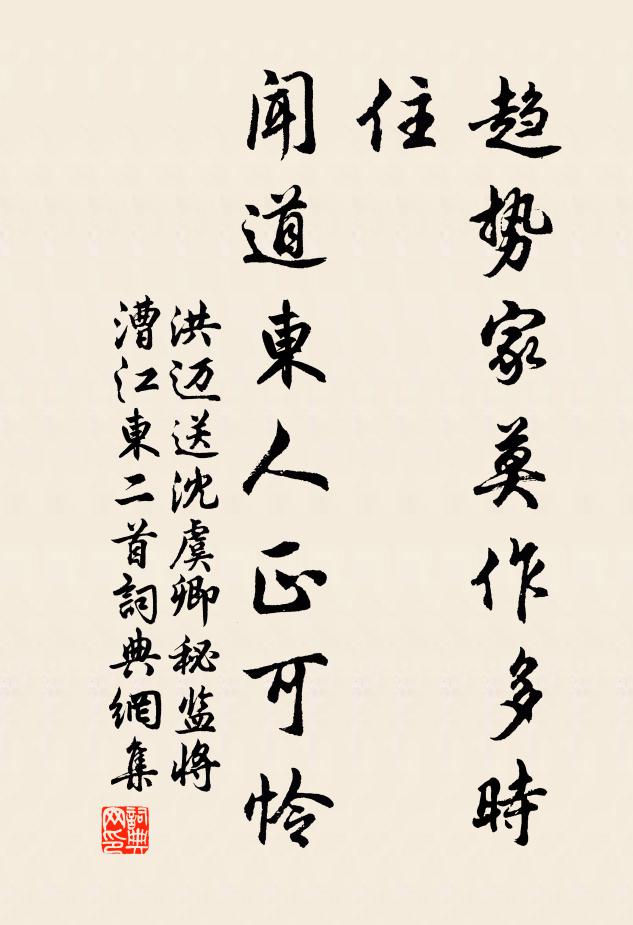 趋势家莫作多時
住
聞道東人正可怜
洪迈送沈虞卿秘监將
漕江東二首詞典網集
詞典
网印